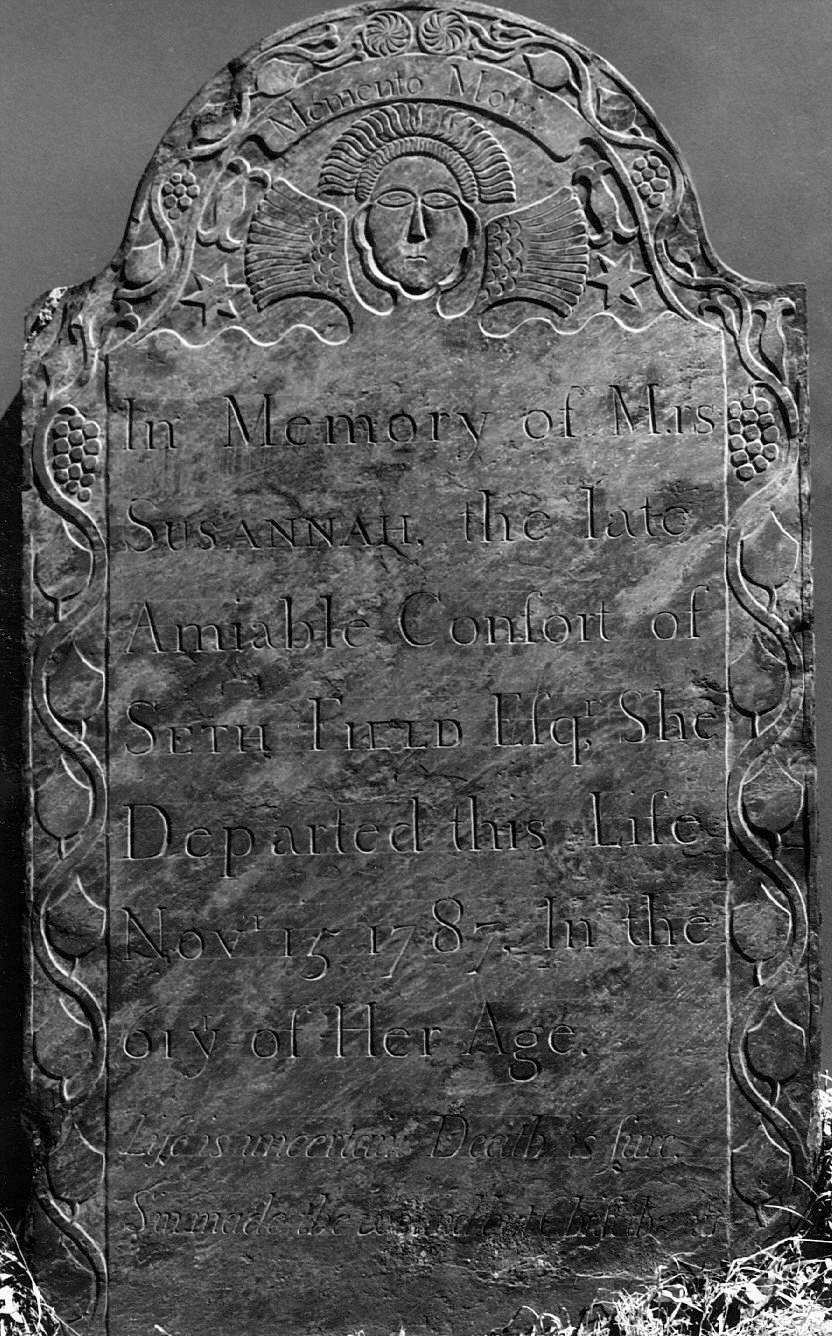 Memento Mori.
In Memory of Mrs
SUSANNAH, the late
Amiable Conſort of
SETH FIELD Eſqr, She
Departed this Life
Novr 15 1787, In the
61y of Her Age.
Life is uncertain Death is ſure,
Sin made the wound